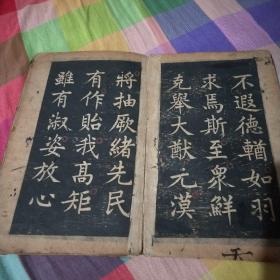 不遐德輶如羽
求焉斯至衆鮮
克舉大猷元漠
將抽厥緒先民
有作貽我高矩
雖有淑姿放心